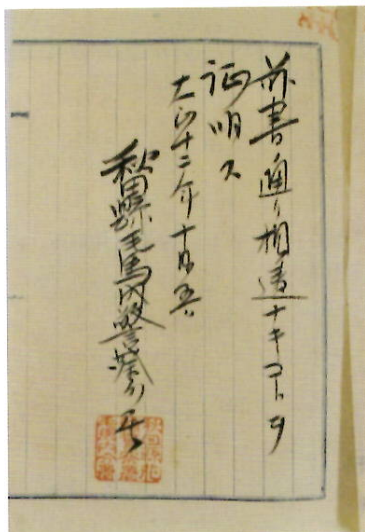 前書ノ通リ相違ナキコトヲ
証明ス
大正十二年十月五日
秋田縣毛馬内警察署